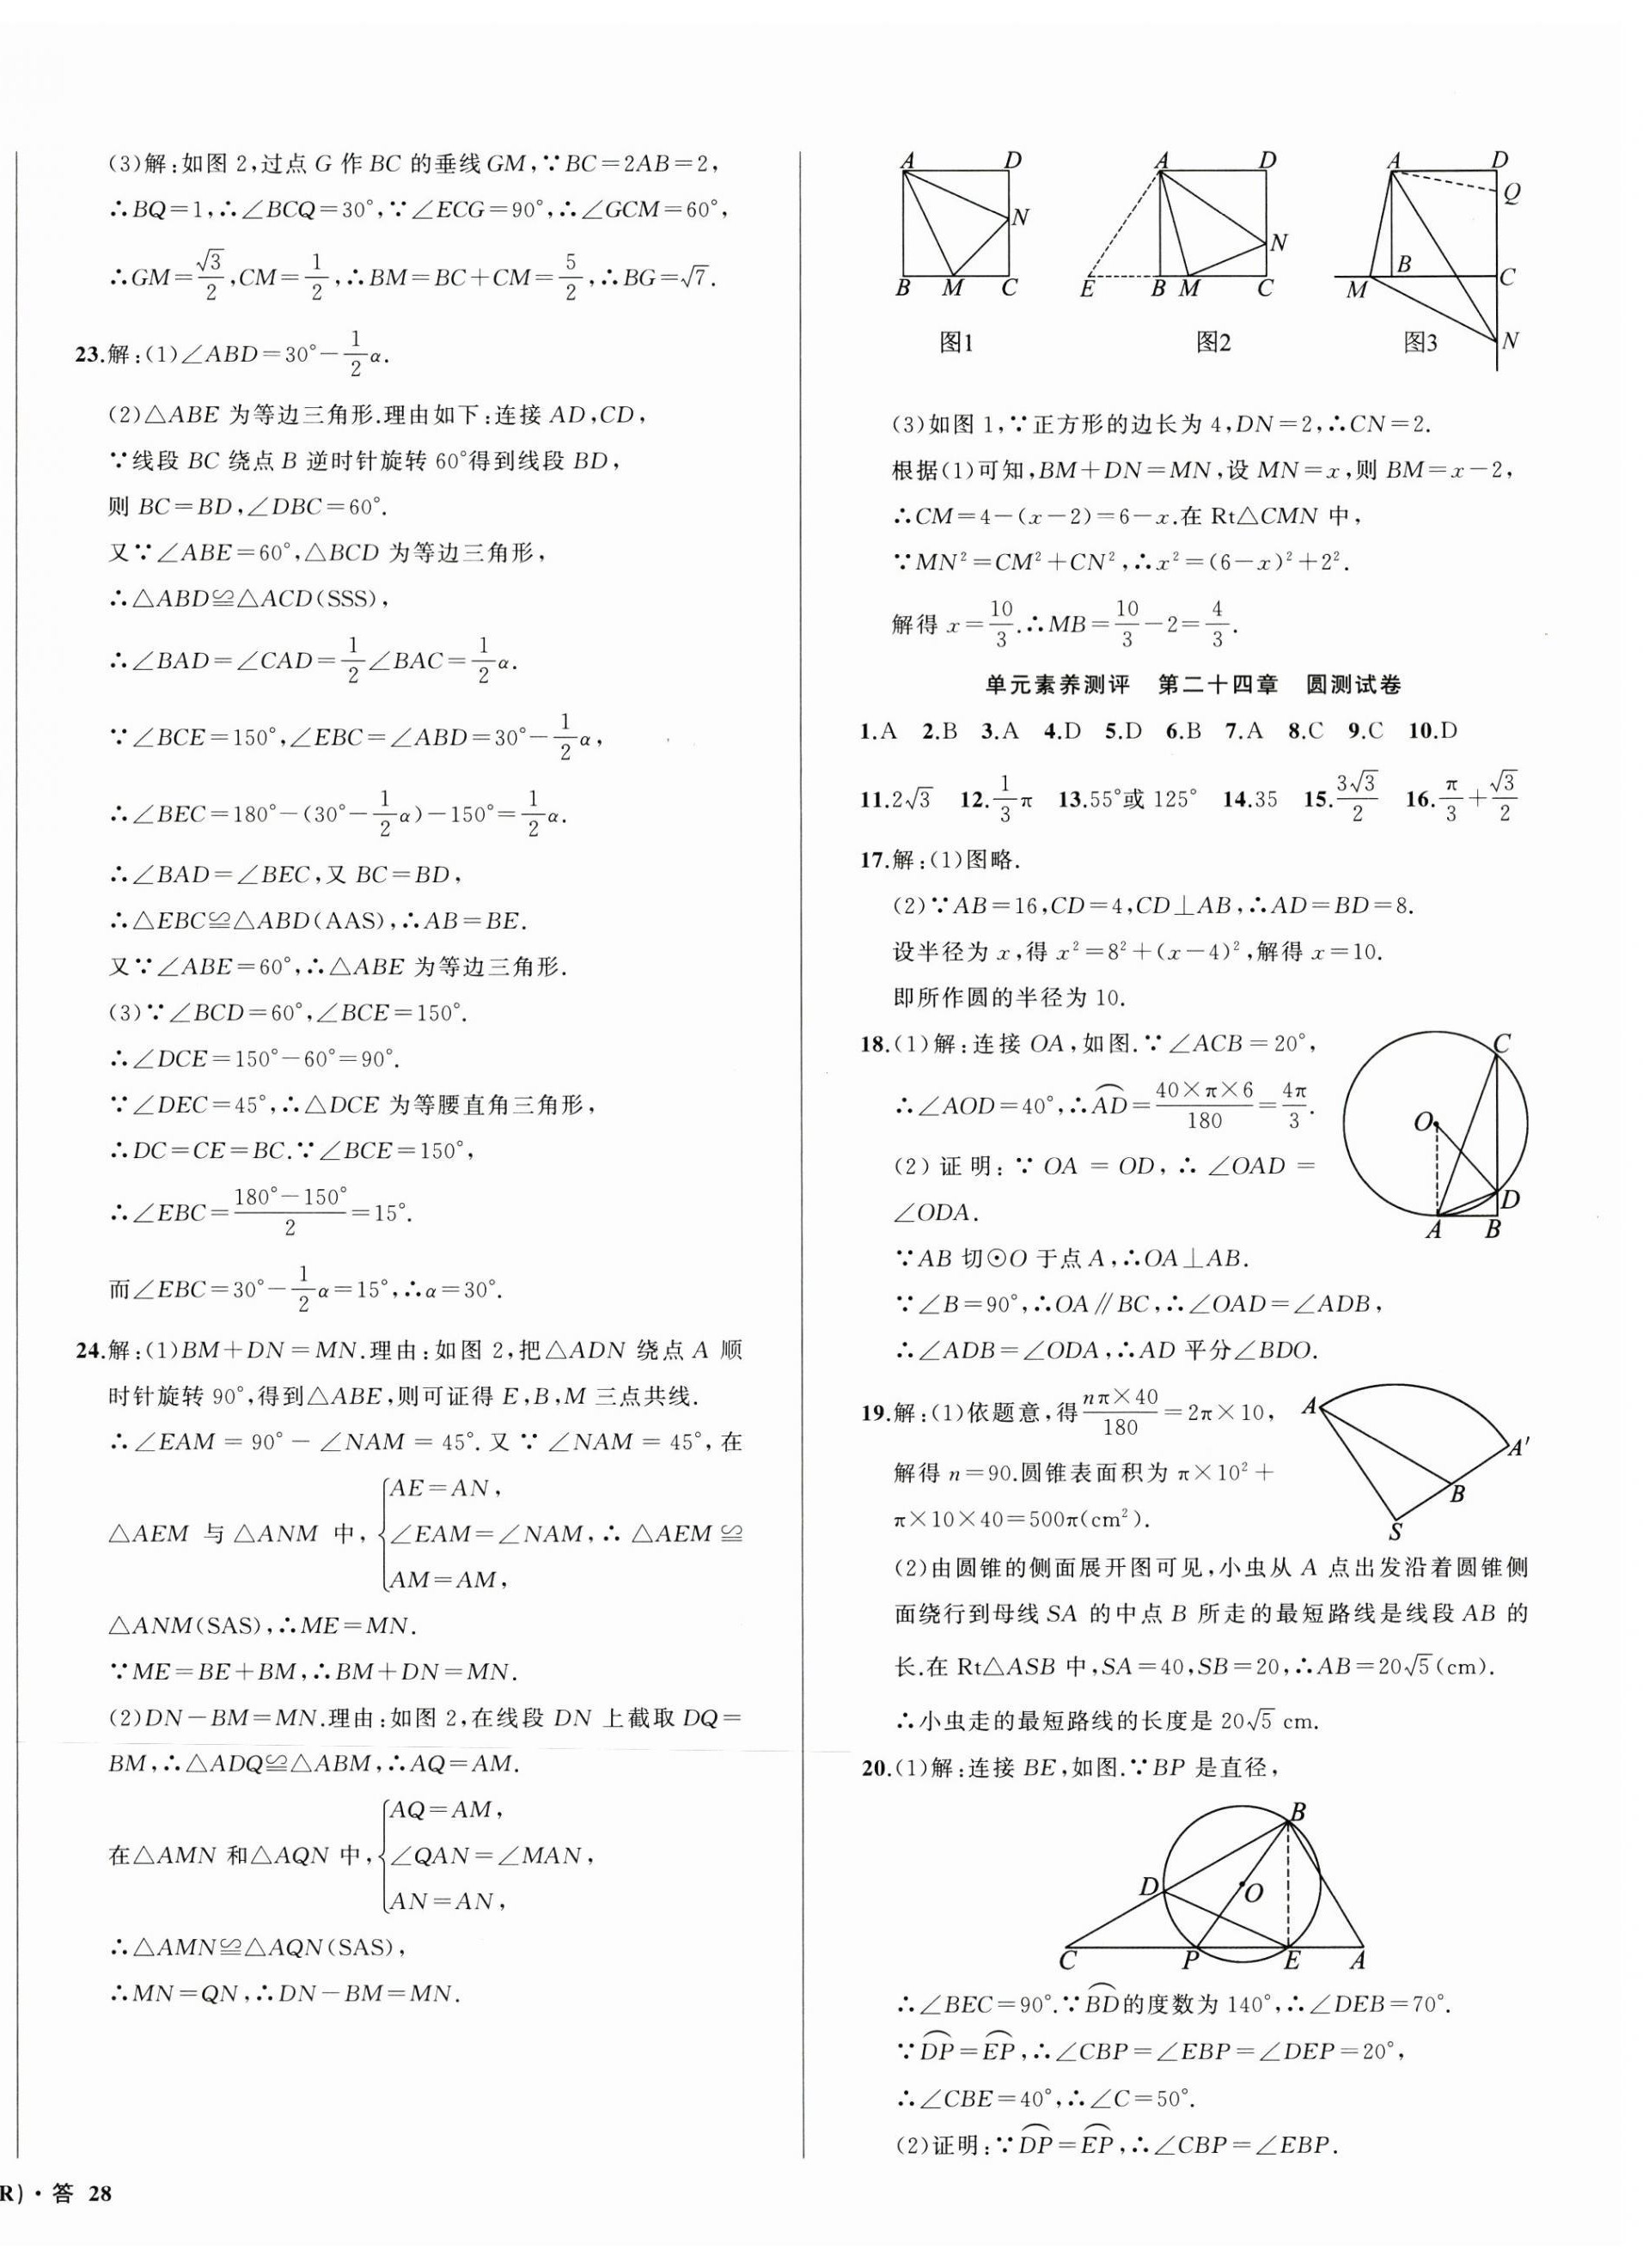 (3)解:如图 2,过点 G 作 BC 的垂线 GM,∵BC=2AB=2,
∴BQ=1,∴∠BCQ=30°,∵∠ECG=90°,∴∠GCM=60°,
∴GM=√3/2,CM=1/2,∴BM=BC+CM=5/2,∴BG=√7.
23.解:(1)∠ABD=30°-1/2α.
(2)△ABE 为等边三角形.理由如下:连接 AD,CD,
∵线段 BC 绕点 B 逆时针旋转 60°得到线段 BD,
则 BC=BD,∠DBC=60°.
又∵∠ABE=60°,△BCD 为等边三角形,
∴△ABD≌△ACD(SSS),
∴∠BAD=∠CAD=1/2∠BAC=1/2α.
∵∠BCE=150°,∠EBC=∠ABD=30°-1/2α,
∴∠BEC=180°-(30°-1/2α)-150°=1/2α.
∴∠BAD=∠BEC,又 BC=BD,
∴△EBC≌△ABD(AAS),∴AB=BE.
又∵∠ABE=60°,∴△ABE 为等边三角形.
(3)∵∠BCD=60°,∠BCE=150°.
∴∠DCE=150°-60°=90°.
∵∠DEC=45°,∴△DCE 为等腰直角三角形,
∴DC=CE=BC.∵∠BCE=150°,
∴∠EBC=(180°-150°)/2=15°.
而∠EBC=30°-1/2α=15°,∴α=30°.
24.解:(1)BM+DN=MN.理由:如图 2,把△ADN 绕点 A 顺
时针旋转 90°,得到△ABE,则可证得 E,B,M 三点共线.
∴∠EAM=90°-∠NAM=45°.又∵∠NAM=45°,在
AE=AN,
△AEM 与△ANM 中,{∠EAM=∠NAM,∴△AEM≌
AM=AM,
△ANM(SAS),∴ME=MN.
∵ME=BE+BM,∴BM+DN=MN.
(2)DN-BM=MN.理由:如图 2,在线段 DN 上截取 DQ=
BM,∴△ADQ≌△ABM,∴AQ=AM.
AQ=AM,
在△AMN 和△AQN 中,{∠QAN=∠MAN,
AN=AN,
∴△AMN≌△AQN(SAS),
∴MN=QN,∴DN-BM=MN.
R)·答 28
A D N B M C
图1
A D N E B M C
图2
A D Q B C M N
图3
(3)如图 1,∵正方形的边长为 4,DN=2,∴CN=2.
根据(1)可知,BM+DN=MN,设 MN=x,则 BM=x-2,
∴CM=4-(x-2)=6-x.在 Rt△CMN 中,
∵MN²=CM²+CN²,∴x²=(6-x)²+2².
解得 x=10/3.∴MB=10/3-2=4/3.
单元素养测评 第二十四章 圆测试卷
1.A 2.B 3.A 4.D 5.D 6.B 7.A 8.C 9.C 10.D
11.2√3 12.1/3π 13.55°或 125° 14.35 15.3√3/2 16.π/3+√3/2
17.解:(1)图略.
(2)∵AB=16,CD=4,CD⊥AB,∴AD=BD=8.
设半径为 x,得 x²=8²+(x-4)²,解得 x=10.
即所作圆的半径为 10.
18.(1)解:连接 OA,如图.∵∠ACB=20°,
∴∠AOD=40°,∴⌒AD=(40×π×6)/180=4π/3.
(2)证明:∵OA=OD,∴∠OAD=
∠ODA.
∵AB 切⊙O 于点 A,∴OA⊥AB.
∵∠B=90°,∴OA∥BC,∴∠OAD=∠ADB,
∴∠ADB=∠ODA,∴AD 平分∠BDO.
C O D A B
19.解:(1)依题意,得(nπ×40)/180=2π×10,
解得 n=90.圆锥表面积为 π×10²+
π×10×40=500π(cm²).
A A′ B S
(2)由圆锥的侧面展开图可见,小虫从 A 点出发沿着圆锥侧
面绕行到母线 SA 的中点 B 所走的最短路线是线段 AB 的
长.在 Rt△ASB 中,SA=40,SB=20,∴AB=20√5(cm).
∴小虫走的最短路线的长度是 20√5 cm.
20.(1)解:连接 BE,如图.∵BP 是直径,
B D O C P E A
∴∠BEC=90°.∵⌒BD的度数为 140°,∴∠DEB=70°.
∵⌒DP=⌒EP,∴∠CBP=∠EBP=∠DEP=20°,
∴∠CBE=40°,∴∠C=50°.
(2)证明:∵⌒DP=⌒EP,∴∠CBP=∠EBP.